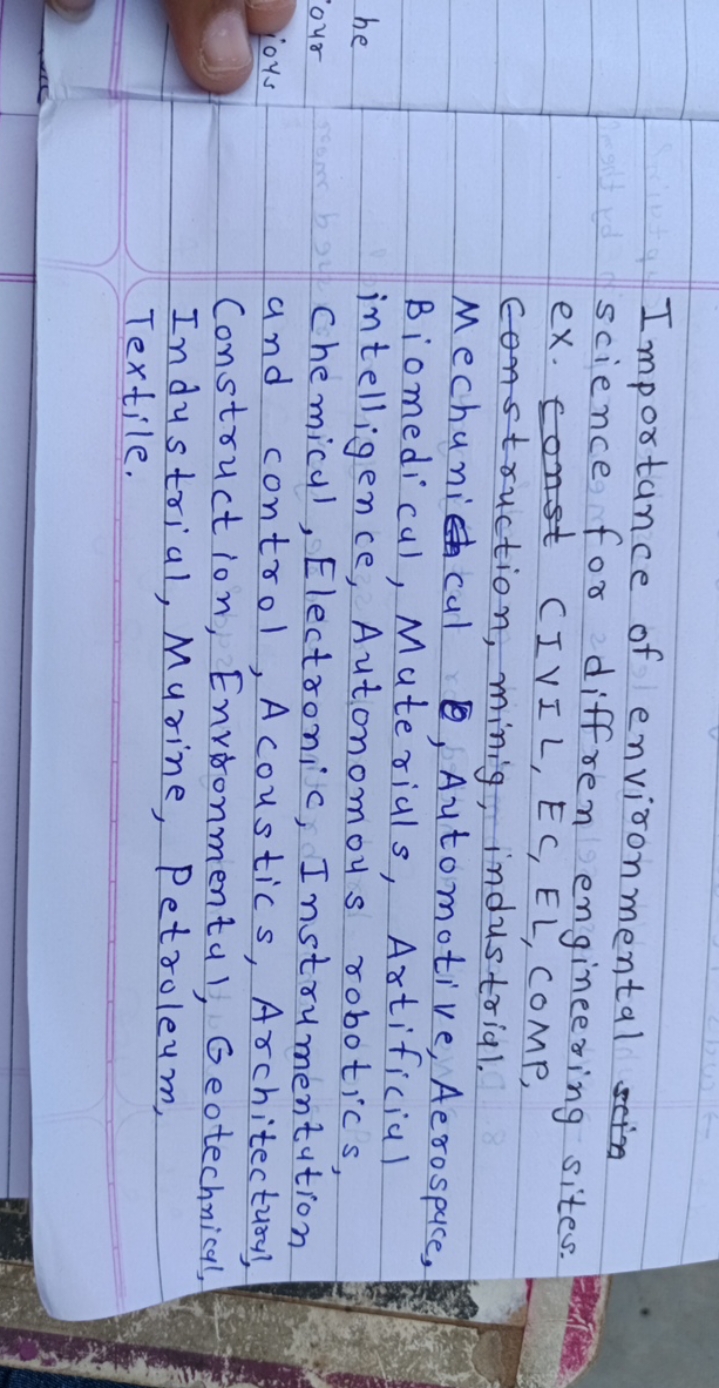 he
our
ious
Importance of environmental scin
science for diffren engineering sites.
ex. const CIVIL, EC, EL, COMP,
construction, minig, industrial.
Mechanical, Automotive, Aerospace,
Biomedical, Materials, Artificial
intelligence, Autonomous robotics,
chemical, Electronic, Instrumentation
and control, Acoustics, Architectural,
Construction, Envronmental, Geotechnical,
Industrial, Marine, Petroleum,
Textile.